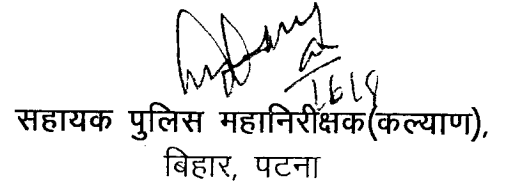 16/8
सहायक पुलिस महानिरीक्षक(कल्याण),
बिहार, पटना